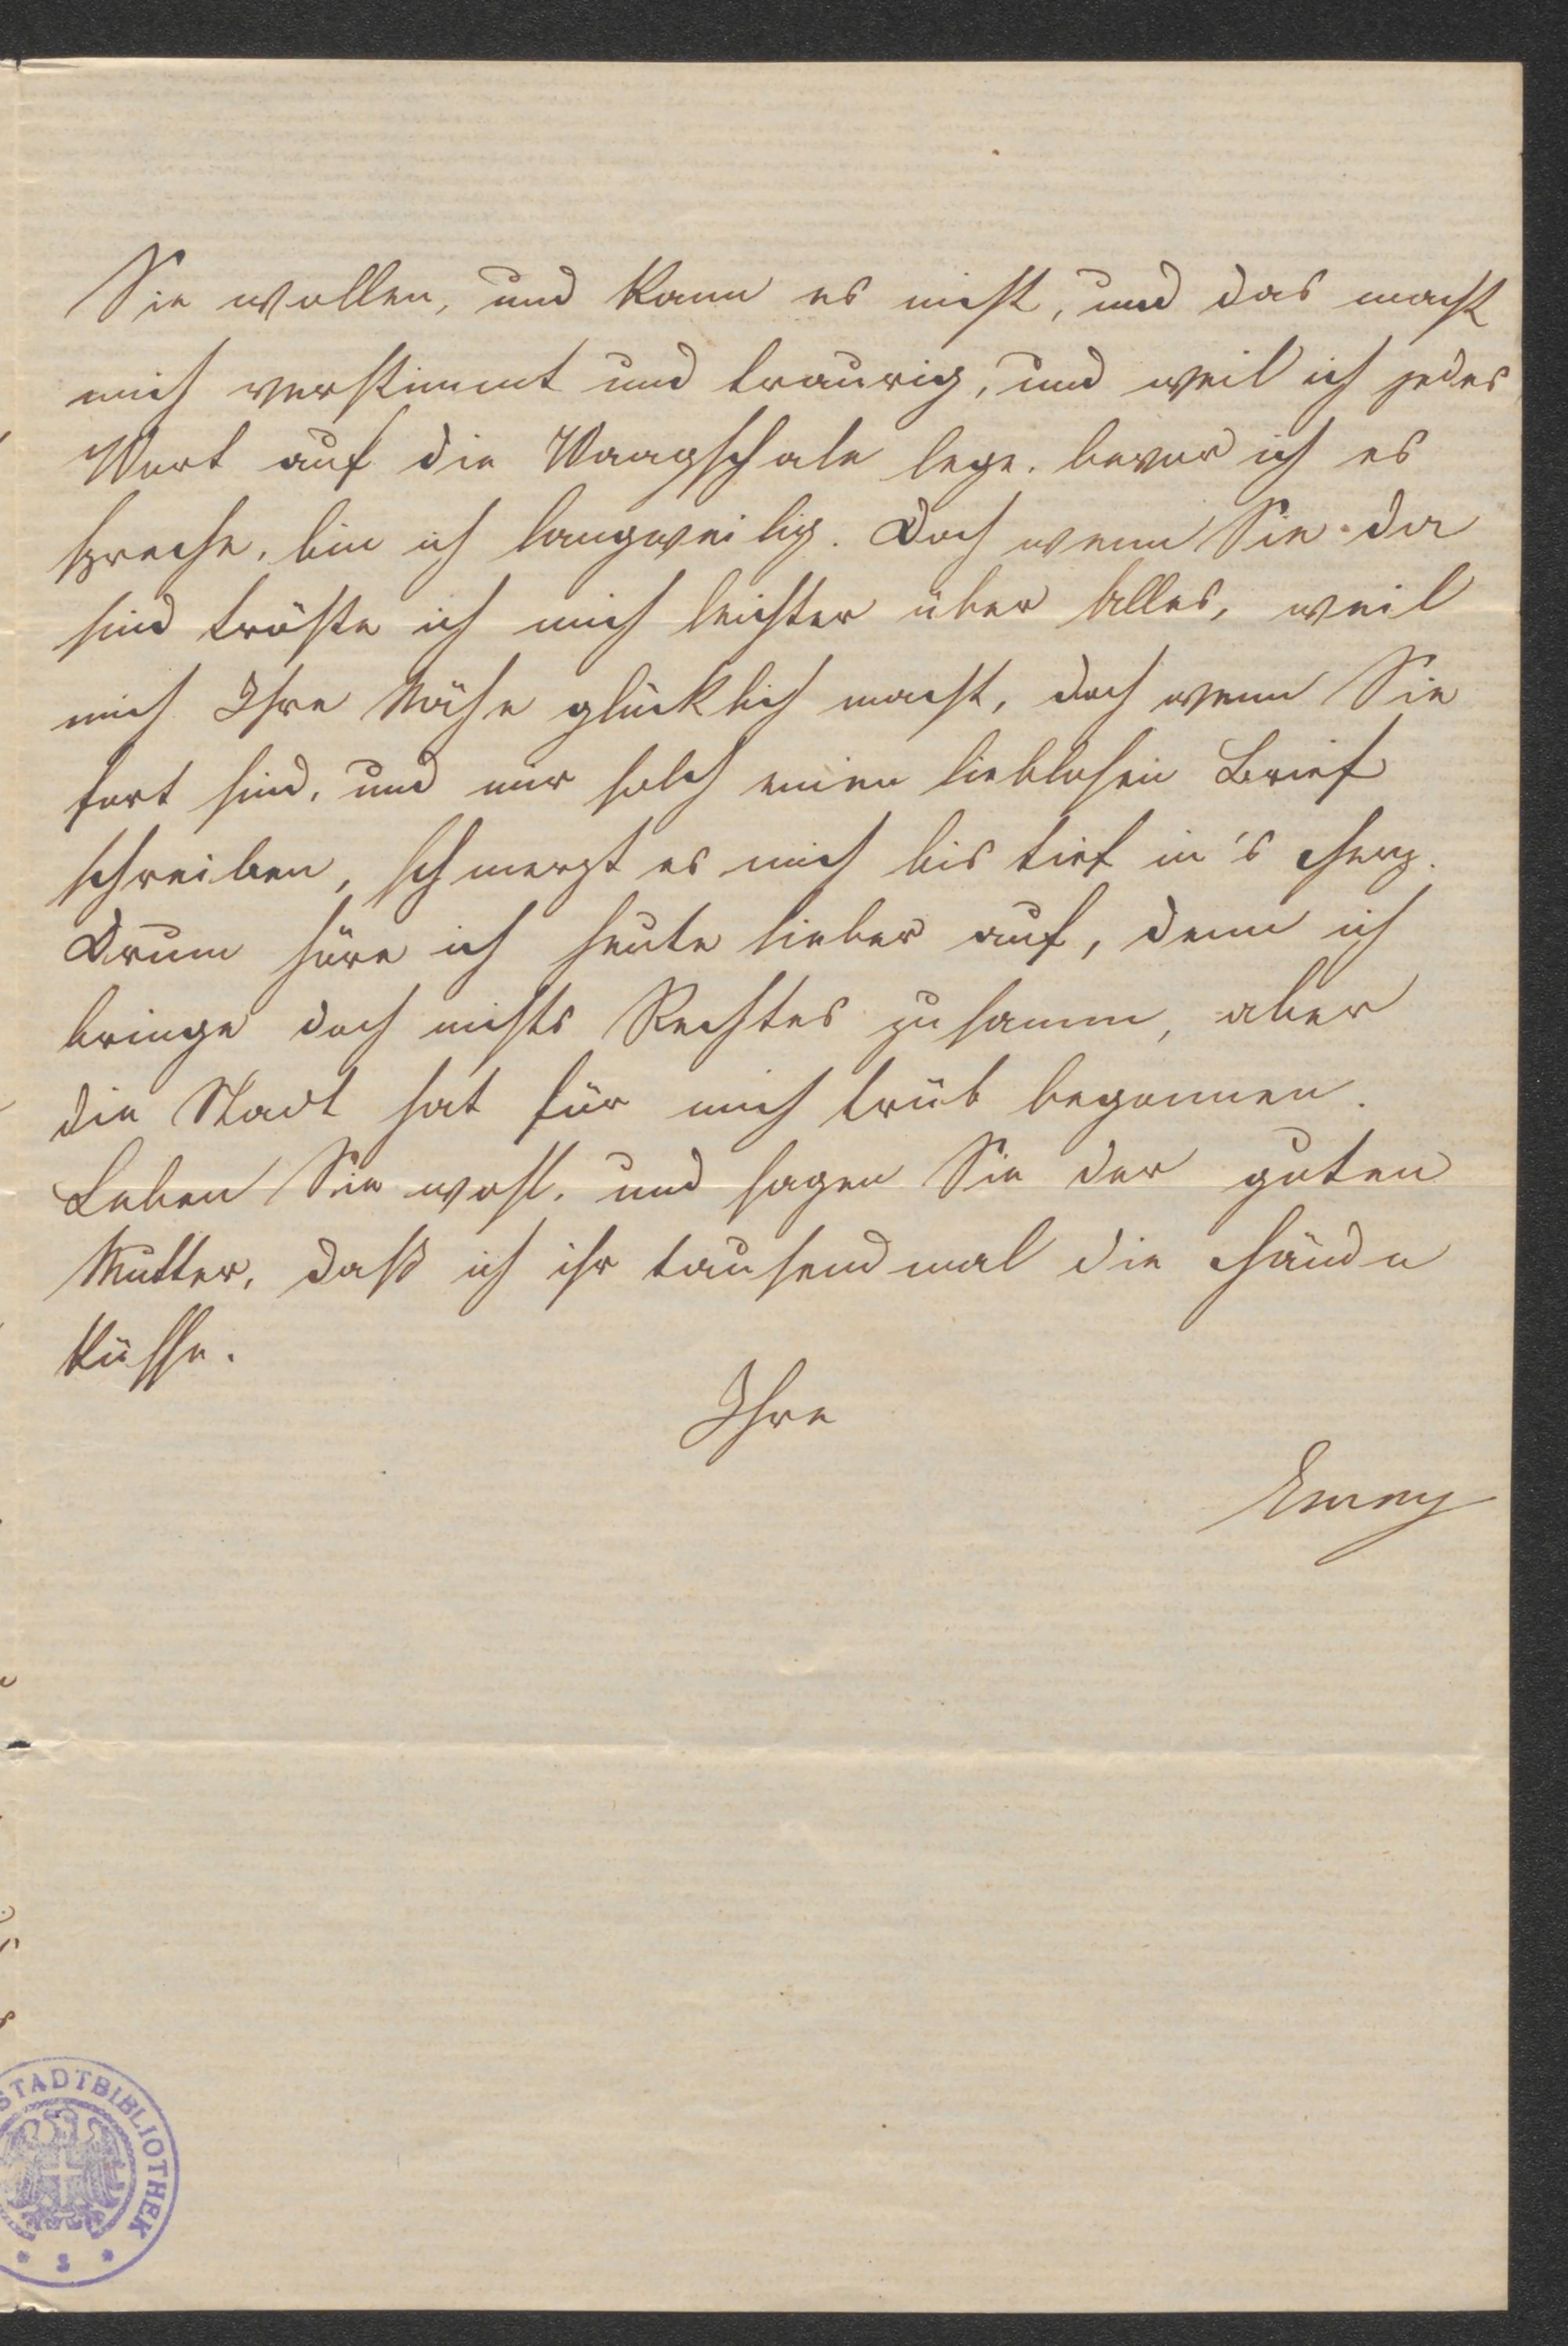 Sie wollen, und kann es nicht, und das macht
mich verstimmt und traurig, und weil ich jedes
Wort auf die Waagschale lege, bevor ich es
spreche, bin ich langweilig. Doch wenn Sie da
sind tröste ich mich leichter über Alles, weil
mich Ihre Nähe glücklich macht, doch wenn Sie
fort sind, und mir solch einen lieblosen Brief
schreiben, schmerzt es mich bis tief in's Herz.
Drum höre ich heute lieber auf, denn ich
bringe doch nichts Rechtes zusamm, aber
die Stadt hat für mich trüb begonnen.
Leben Sie wohl, und sagen Sie der guten
Mutter, daß ich ihr tausendmal die Hände
küsse.
Ihre
Emmy
STADTBIBLIOTHEK